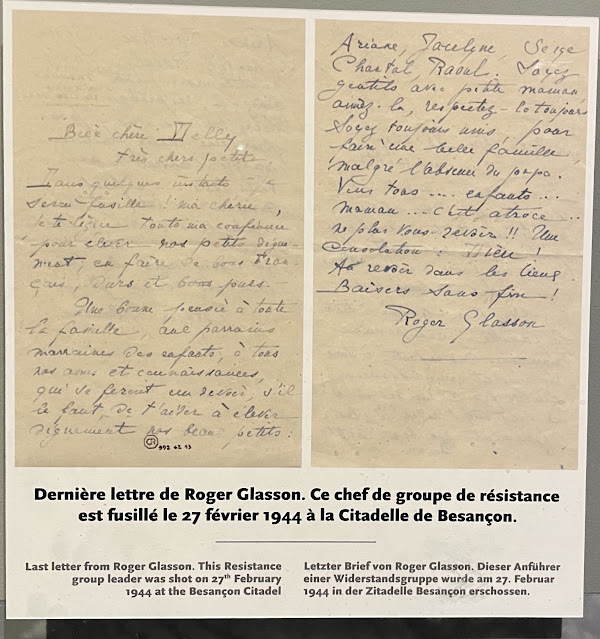 Bien chère Nelly
très chers petits
Dans quelques instants je
serai fusillé ! ma chérie,
je te lègue toute ma confiance
pour élever nos petits digne-
ment, en faire de bons Fran-
çais, durs et bons purs.
Une bonne pensée à toute
la famille, aux parrains
marraines des enfants, à tous
nos amis et connaissances,
qui se feront un devoir, s'il
le faut, de t'aider à élever
dignement nos beaux petits.
CR 992 42 13
Ariane, Jocelyne, Serge
Chantal, Raoul. Soyez
gentils avec petite maman
aimez-la, respectez-la toujours
Soyez toujours unis, pour
faire une belle famille,
malgré l'absence du papa.
Vous tous .... enfants ...
maman .... c'est atroce ..
ne plus vous revoir !! Une
Consolation : Dieu !
Au revoir dans les cieux.
Baisers sans fin !
Roger Glasson
Dernière lettre de Roger Glasson. Ce chef de groupe de résistance
est fusillé le 27 février 1944 à la Citadelle de Besançon.
Last letter from Roger Glasson. This Resistance
group leader was shot on 27th February
1944 at the Besançon Citadel
Letzter Brief von Roger Glasson. Dieser Anführer
einer Widerstandsgruppe wurde am 27. Februar
1944 in der Zitadelle Besançon erschossen.